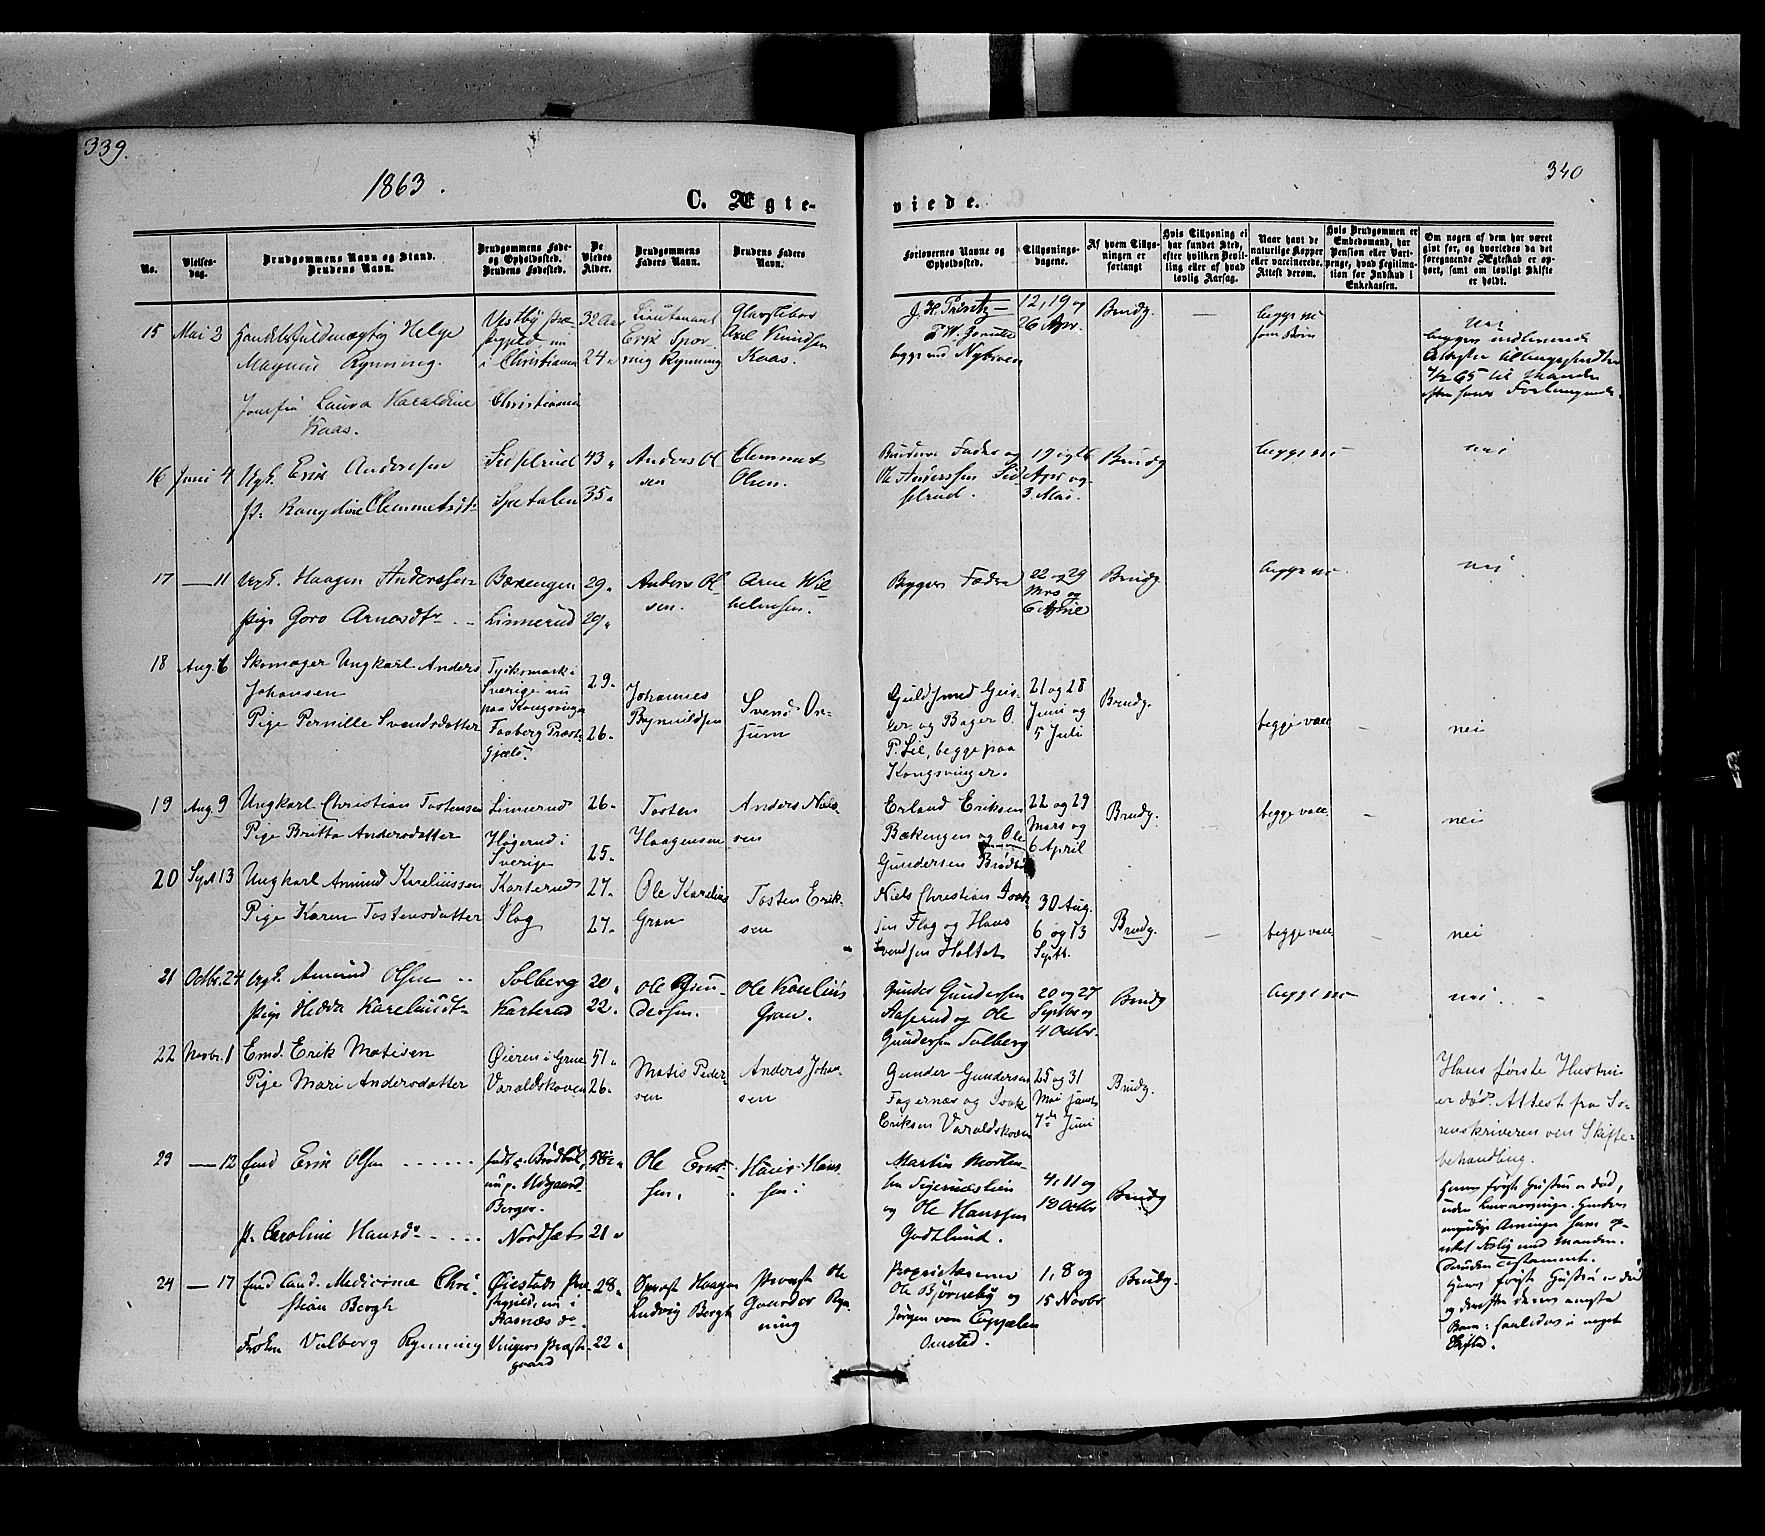 339.
340
1863.
C. Ægte-
viede.
No.
Vielses-
dag.
Brudgommens Navn og Stand.
Brudens Navn.
Brudgommens Føde-
og Opholdssted.
Brudens Fødested.
De
Viedes
Alder.
Brudgommens
Faders Navn.
Brudens Faders
Navn.
Forlovernes Navne og
Opholdssted.
Tillysnings-
dagene.
Af hvem Tillys-
ningen er
forlangt
Hvis Tillysning ei
har fundet Sted,
efter hvilken Bevil-
ling eller af hvad
lovlig Aarsag.
Naar havt de
naturlige Kopper
eller vaccinerede.
Attest derom.
Hvis Brudgommen er
Embedsmand, har
Pension eller Vart-
penge, hvad Legitima-
tion for Indskud i
Enkekassen.
Om nogen af dem har været
gift før, og hvorledes da det
foregaaende Ægteskab er op-
hørt, samt om lovligt Skifte
er holdt.
15 Mai 3 Handelsfuldmægtig Helge
Magnus Rynning.
Jomfru Laura Haraldine
Kaas.
Vestby Præ-
stegjeld nu
i Christiania
Christiania
32 Aar
24 "
Lieutenant
Erik Spor-
nig Rynning
Axel Knudsen
Kaas.
12, 19 og
26 Apr.
Brudg.
—
begge vac
nei
16 Juni 4 Ugk. Erik Andersen
p. Rangdine Clemmetsdt.
Spetalen
43 "
35 "
Anders Ol
sen
Clemmet
Olsen.
Brudens Fader og
Ole Anderssen
19 og 26
Apr og
3 Mai.
Brudg
begge vac
nei
17 — 11 Ugk. Haagen Andersen
pige Goro Arnesdtr
Bæxengen
Linnerud
29 "
29 "
Anders Ol
sen.
Arne Wil
helmsen.
Begges Fædre
22 og 29
Mrs og
6 April
Brudg
begge vac
nei
18 Aug. 6 Skomager Ungkarl Anders
Johansen
Pige Pernille Svendsdatter
Sverige nu
paa Kongsvinger
Faaberg Præst-
gjæld.
29 "
26 "
Johannes
Svend On-
sum
Guldsmed Geis-
ler og Bager O.
P. Lie, begge paa
Kongsvinger.
21 og 28
Juni og
5 Juli
Brudg.
begge vacc
—
nei
19 Aug. 9 Ungkarl Christian Tostensen
Pige Britta Andersdatter
Linnerud
Høgerud i
Sverige
26 "
25 "
Tosten
Haagensen
Anders Niel-
sen
Erland Eriksen
Bækengen og Ole
Gundersen Brødbøl
22 og 29
Mars og
6 April
Brudg.
begge vacc
—
nei
20 Sept 13 Ungkarl Amund Kareliussen
Pige Karen Tostensdatter
Karterud
Flag
27 "
27 "
Ole Karelius
Gran
Tosten Erik-
sen
Niels Christian Isak-
sen Flag og Hans
Svendsen Holtet
30 Aug.
6 og 13
Septr.
Brudg.
—
begge vacc
—
nei
21 Octbr. 24 Ugk. Amund Olsen
pige Hedda Kareliusdt.
Solberg
Karterud
20 "
22 "
Ole Gun-
dersen.
Ole Karelius
Gran.
Gunder Gundersen
Aaserud og Ole
Gundersen Solberg
20 og 27
Septbr og
4 Octbr.
Brudg
begge vac
nei
22 Novbr. 1 Emd. Erik Matisen
Pige Mari Andersdatter
Øieren i Grue
Varaldskoven
51 "
26 "
Matis Peder-
sen
Anders Johan-
sen
Gunder Gundersen
Fagernæs og Isak
Eriksen Varaldskoven
25 og 31
Mai samt
7de Juni
Brudg.
Hans første Hustru
er død. Attest fra So-
renskriveren om Skifte-
behandling.
23 — 12 Emd Erik Olsen
p. Caroline Hansd.
født p. Brødbøl,
Berger.
Nordset
21 "
Ole Erik
sen.
Hans Hans
sen.
Martin Morten-
og Ole Hanssen
Godtlund.
4, 11 og
18 Octbr
Brudg
Hans første Hustru er død,
24 — 17 Emd Cand. Medicinæ Chri-
stian Bergh
Frøken Valborg Rynning
Øiestads Præ
stegjeld, nu i
Aasnæs
Vingers Præste
gaard
28 "
22 "
Provst Haagen
Ludvig Bergh
Provst Ole
Gunerder Ryn-
ning
Proprietærene
Ole Bjørneby og
Jørgen von Cappelen
Omsted.
1, 8 og
15 Novbr
Brudg.
Hans første Hustru er død